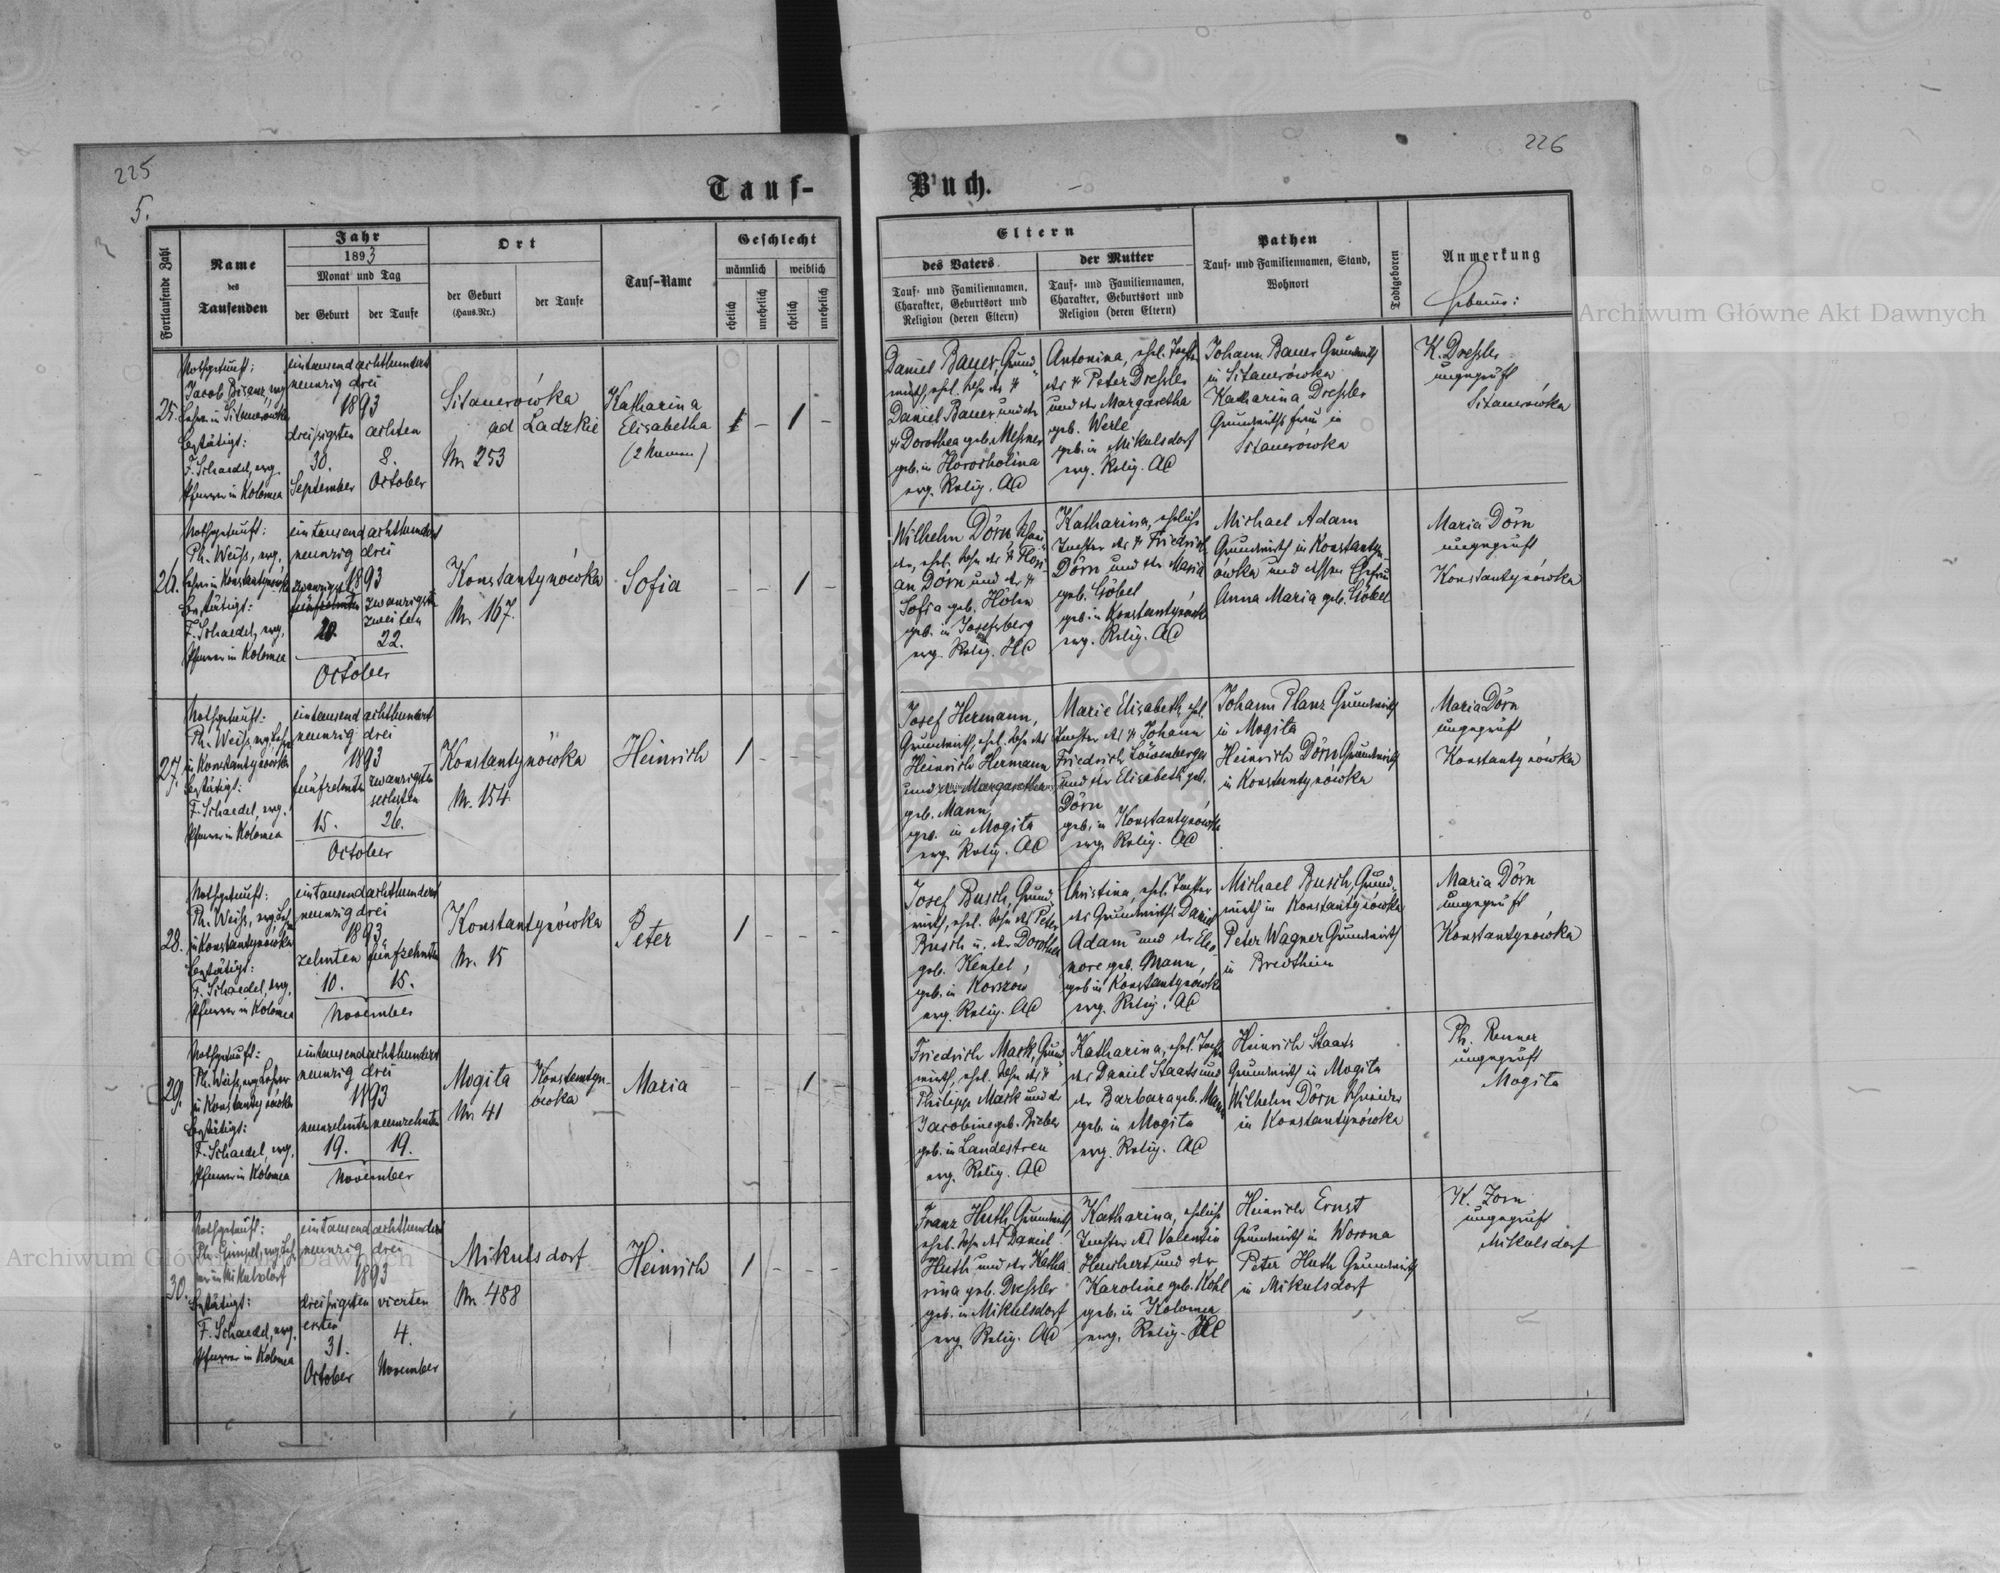 225
226
5.
Tauf-
Buch.
Fortlaufende Zahl
Name
des
Taufenden
Jahr
1893
Monat und Tag
der Geburt
der Taufe
Ort
der Geburt
(Haus-Nr.)
der Taufe
Tauf-Name
Geschlecht
männlich
weiblich
ehelich
unehelich
ehelich
unehelich
Eltern
des Vaters
Tauf- und Familiennamen,
Charakter, Geburtsort und
Religion (deren Eltern)
der Mutter
Tauf- und Familiennamen,
Charakter, Geburtsort und
Religion (deren Eltern)
Pathen
Tauf- und Familiennamen, Stand,
Wohnort
Todtgeboren
Anmerkung
Hebamme:
25.
Nothgetauft:
Jacob Bisanz, evg.
Lehrer in Sitauerówka
Bestätigt:
F. Schaedel, evg.
Pfarrer in Kolomea
eintausend achthundert
neunzig drei
1893
dreißigsten
30.
September
achten
8.
October
Sitauerówka
ad Ladzkie
Nr. 253
Katharina
Elisabetha
(2 Namen)
1 - 1 -
Daniel Bauer, Grund-
wirth, ehel. Sohn des †
Daniel Bauer und der
† Dorothea geb. Messner
geb. in Horocholina
evg. Relig. AC
Antonina, ehel. Tochter
des † Peter Dressler
und der Margaretha
geb. Werle
geb. in Mikulsdorf
evg. Relig. AC
Johann Bauer Grundwirth
in Sitauerówka
Katharina Dressler
Grundwirths frau in
Sitauerówka
K. Dressler
ungeprüft
Sitauerówka
26.
Nothgetauft:
Ph. Weiß, evg.
Lehrer in Konstantynówka
Bestätigt:
F. Schaedel, evg.
Pfarrer in Kolomea
eintausend achthundert
neunzig drei
1893
zwanzigst
fünfzehnten
20.
zwanzigsten
zweiten
22.
October
Konstantynówka
Nr. 167.
Sofia
- - 1 -
Wilhelm Dörn, Schnei-
der, ehel. Sohn des † Flori-
an Dörn und der †
Sofia geb. Höhn
geb. in Josefsberg
evg. Relig. HC
Katharina, eheliche
Tochter des † Friedrich
Dörn und der Maria
geb. Göbel
geb. in Konstantynówka
evg. Relig. AC
Michael Adam
Grundwirth in Konstantyn-
ówka und dessen Ehefrau
Anna Maria geb. Göbel
Maria Dörn
ungeprüft
Konstantynówka
27.
Nothgetauft:
Ph. Weiß, evg. Lehrer
in Konstantynówka
Bestätigt:
F. Schaedel, evg.
Pfarrer in Kolomea
eintausend achthundert
neunzig drei
1893
fünfzehnten
15.
zwanzigsten
sechsten
26.
October
Konstantynówka
Nr. 154
Heinrich
1 - - -
Josef Hermann,
Grundwirth, ehel. Sohn des
Heinrich Hermann
und der Margaretha
geb. Mann,
geb. in Mogila
evg. Relig. AC
Marie Elisabeth, ehel.
Tochter des † Johann
Friedrich Löwenberger
und der Elisabeth geb.
Dörn
geb. in Konstantynówka
evg. Relig. AC
Johann Planz Grundwirth
in Mogila
Heinrich Dörn Grundwirth
in Konstantynówka
Maria Dörn
ungeprüft
Konstantynówka
28.
Nothgetauft:
Ph. Weiß, evg. Leh-
in Konstantynówka
Bestätigt:
F. Schaedel, evg.
Pfarrer in Kolomea
eintausend achthundert
neunzig drei
1893
zehnten
10.
fünfzehnten
15.
November
Konstantynówka
Nr. 15
Peter
1 - - -
Josef Busch, Grund-
wirth, ehel. Sohn des Peter
Busch u. der Dorothea
geb. Kentel,
geb. in Korszow
evg. Relig. AC
Christina, ehel. Tochter
des Grundwirths Daniel
Adam und der Eleo-
nore geb. Mann,
geb. in Konstantynówka
evg. Relig. AC
Michael Busch, Grund-
wirth in Konstantynówka
Peter Wagner Grundwirth
in Bredtheim
Maria Dörn
ungeprüft
Konstantynówka
29.
Nothgetauft:
Ph. Weiß, evg. Lehrer
in Konstantynówka
Bestätigt:
F. Schaedel, evg.
Pfarrer in Kolomea
eintausend achthundert
neunzig drei
1893
neunzehnten
19.
neunzehnten
19.
November
Mogila
Nr. 41
Konstantyn-
owka
Maria
- - 1 -
Friedrich Mark, Grund-
wirth, ehel. Sohn des †
Philipp Mark und der
Jacobine geb. Bieber
geb. in Landestreu
evg. Relig. AC
Katharina, ehel. Tochter
des Daniel Staats und
der Barbara geb. Mann
geb. in Mogila
evg. Relig. AC
Heinrich Staats
Grundwirth in Mogila
Wilhelm Dörn Schneider
in Konstantynówka
Ph. Renner
ungeprüft
Mogila
30.
Nothgetauft:
Ph. Gimpel, evg. Leh-
rer in Mikulsdorf
Bestätigt:
F. Schaedel, evg.
Pfarrer in Kolomea
eintausend achthundert
neunzig drei
1893
dreißigsten
erster
31.
October
vierten
4.
November
Mikulsdorf
Nr. 488
Heinrich
1 - - -
Franz Huth, Grundwirth,
ehel. Sohn des Daniel
Huth und der Katha-
rina geb. Dressler
geb. in Mikulsdorf
evg. Relig. AC
Katharina, eheliche
Tochter des Valentin
Heuchert und der
Karoline geb. Kohl
geb. in Kolomea
evg. Relig. HC
Heinrich Ernst
Grundwirth in Worona
Peter Huth Grundwirth
in Mikulsdorf
K. Zorn
ungeprüft
Mikulsdorf
Archiwum Główne Akt Dawnych
Archiwum Główne Akt Dawnych